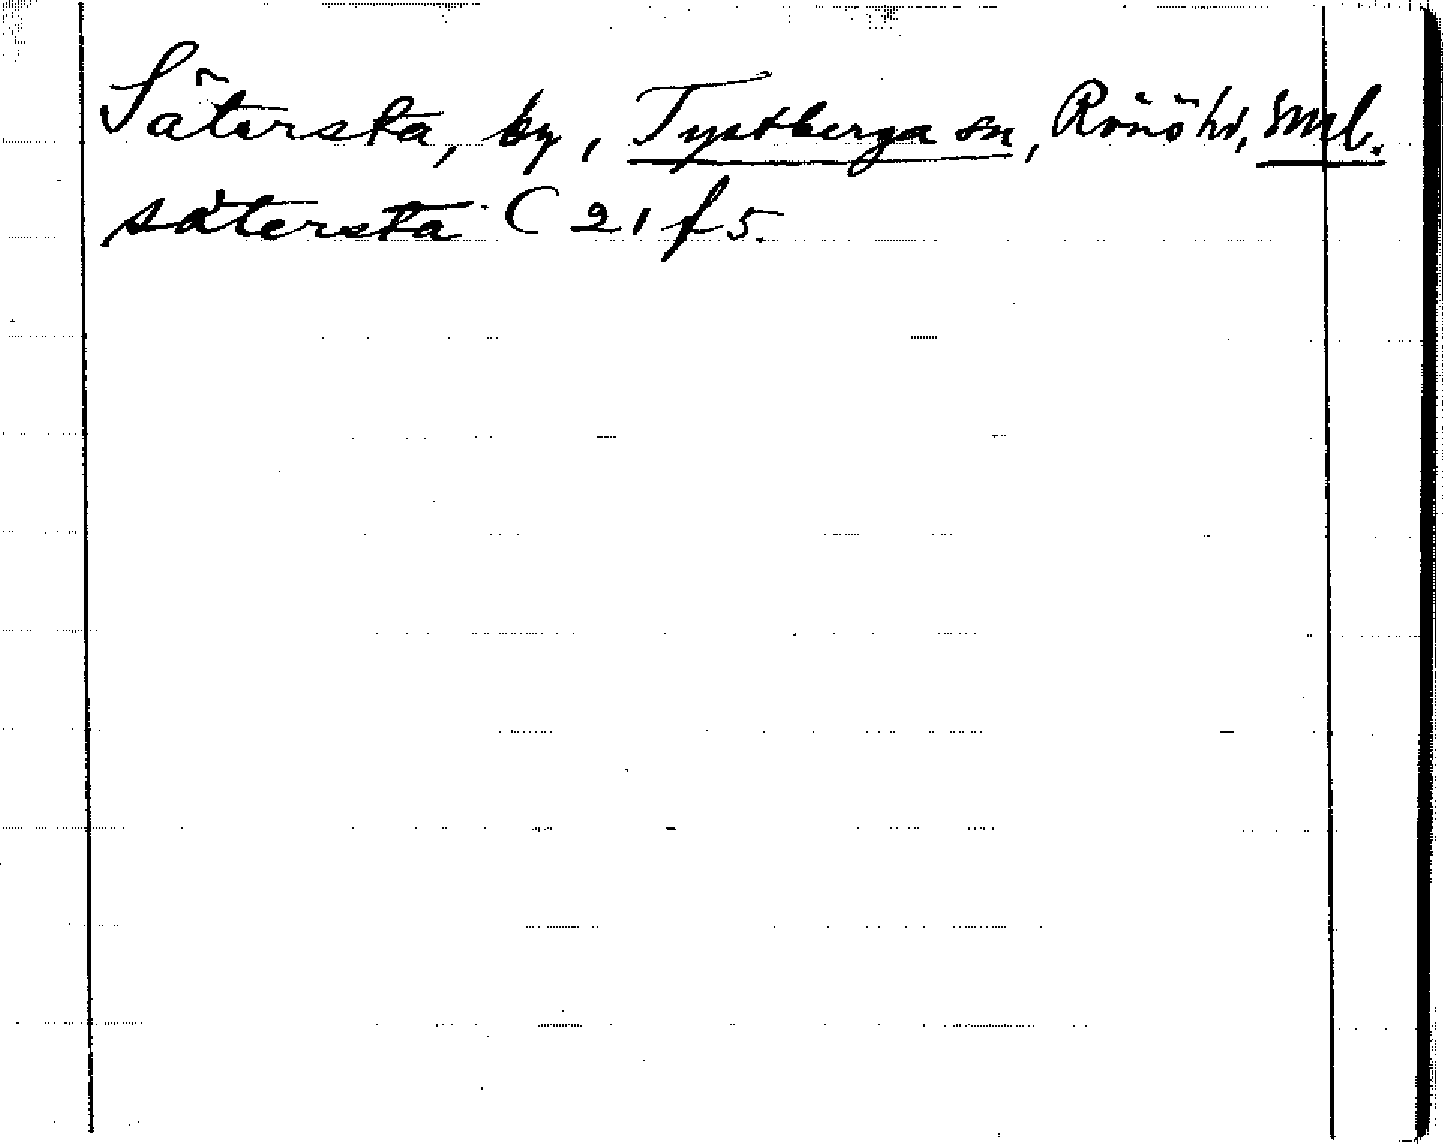 Sätersta, by, Tystberga sn, Rönöhd, Sml.
sätersta C 21 f 5.